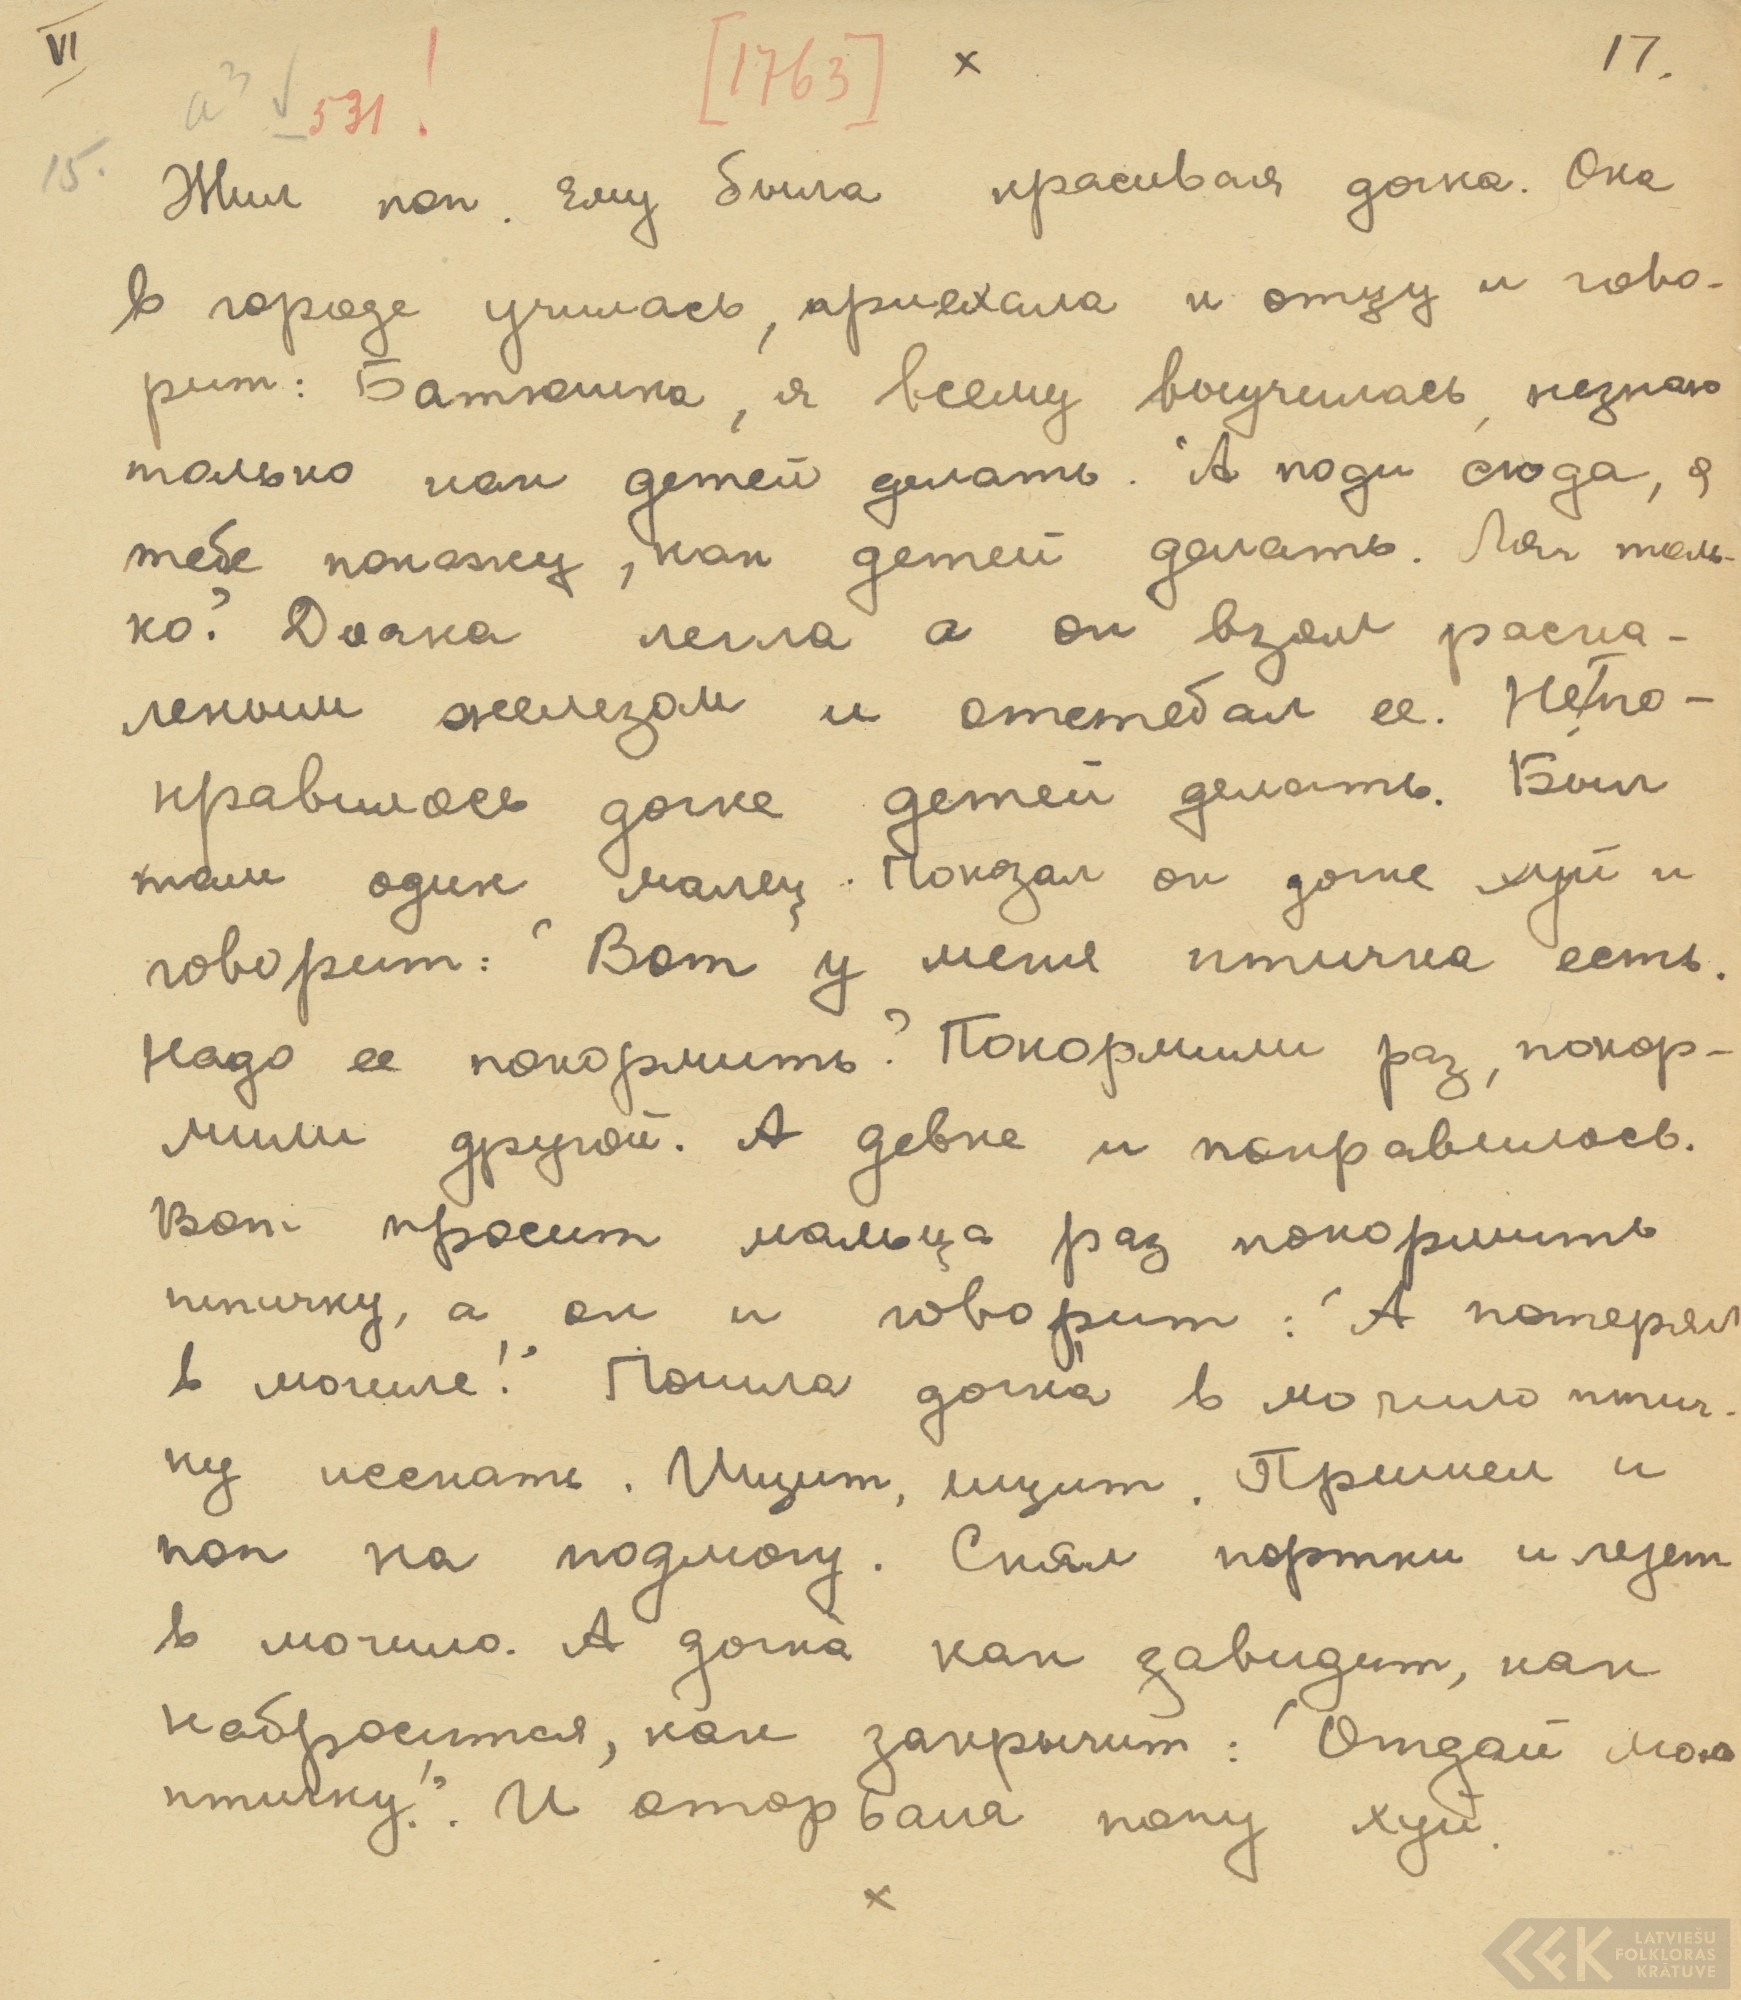 VI
17.
a³ √ 531 ! [1763] x
15.
Жил поп. Ему была красивая дочка. Она
в городе училась, приехала к отцу и гово-
рит: Батюшка, я всему выучилась, незнаю
только как детей делать. "А поди сюда, я
тебе покажу, как детей делать. Ляг толь-
ко?" Дочка легла а он взял раска-
леным железом и отстебал ее. Непо-
нравилось дочке детей делать. Был
там один малец. Показал он дочке хуй и
говорит: "Вот у меня птичка есть.
Надо ее покормить?" Покормили раз, покор-
мили другой. А девке и понравилось.
Вот просит мальца раз покормить
птичку, а он и говорит: "А потерял
в мочиле!" Пошла дочка в мочило птич-
ку искать. Ищит, ищит. Пришел и
поп на подмогу. Снял портки и лезет
в мочило. А дочка как завидит, как
набросится, как закрычит: "Отдай мою
птичку!". И оторвала попу хуй.
x
LATVIEŠU
FOLKLORAS
KRĀTUVE